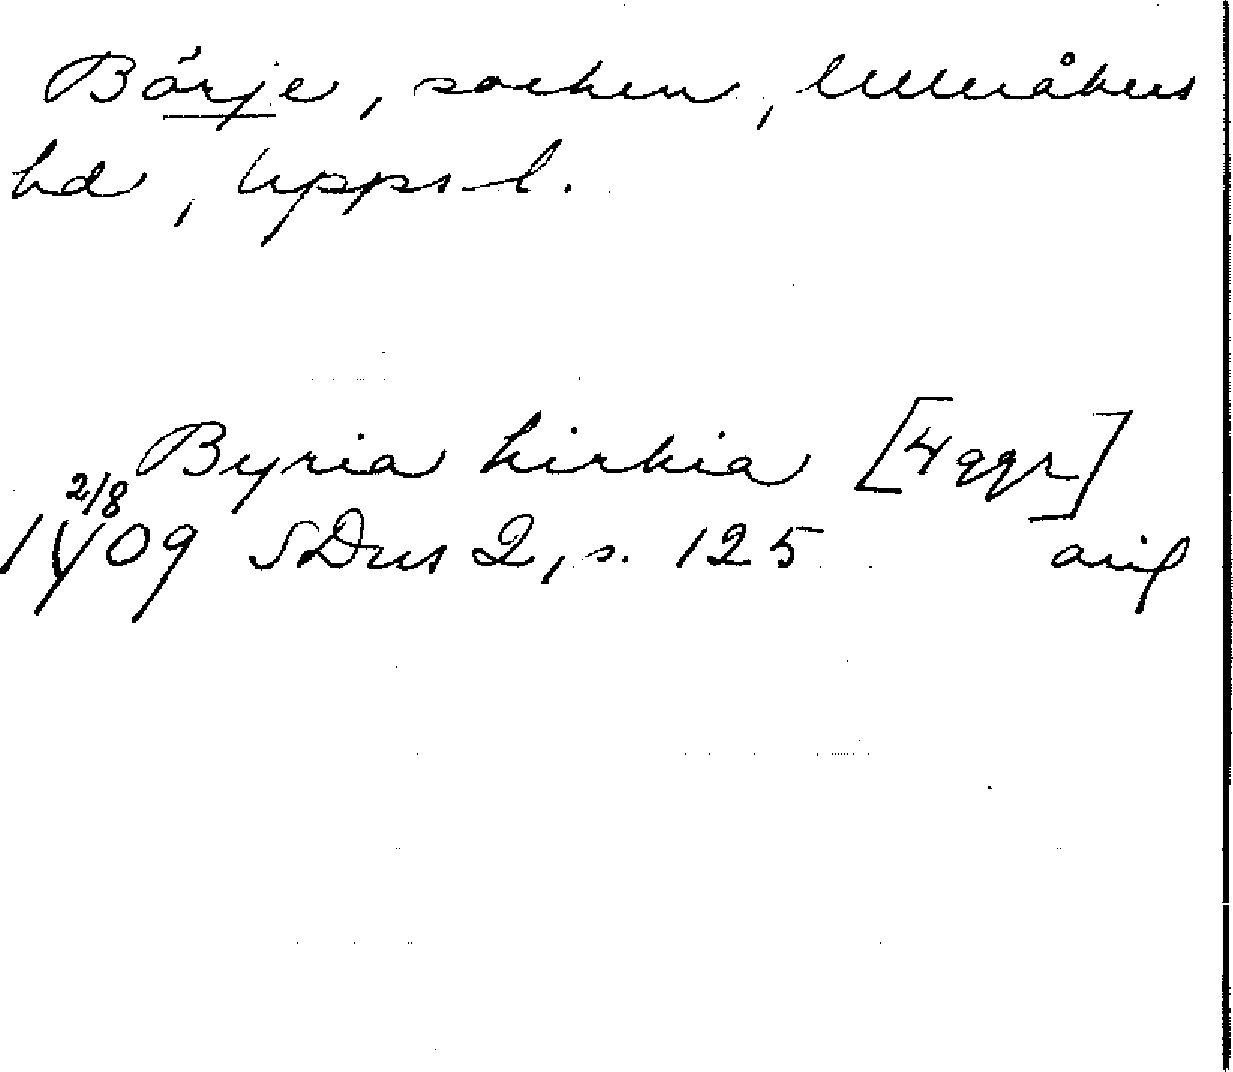 Börje, socken, Ulleråkers
hd, Upps. l.
Byria kirkia [4 ggr]
2/8
1409 SDns 2, s. 125 orig